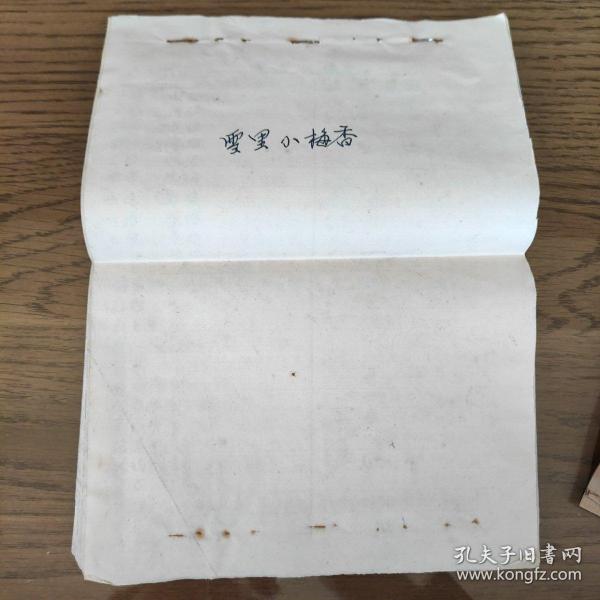 雪里小梅香
孔夫子旧書网
www.kongfz.com